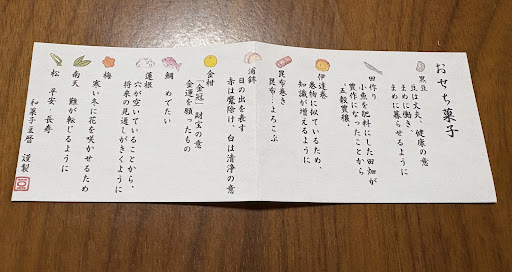 おせち菓子
黒豆
豆は丈夫、健康の意
まめに働き
まめに暮らせるように
田作り
小魚を肥料にした田畑が
豊作になったことから
、五穀豊穣、
伊達巻
巻物に似ているため、
知識が増えるように
昆布巻き
昆布…よろこぶ
蒲鉾
日の出を表す
赤は魔除け・白は清浄の意
金柑
「金冠」財宝の意
金運を願ったもの
鯛
めでたい
蓮根
穴が空いていることから、
将来の見通しがきくように
梅
寒い冬に花を咲かせるため
南天
難が転じるように
松
平安・長寿
和菓子豆暦 謹製